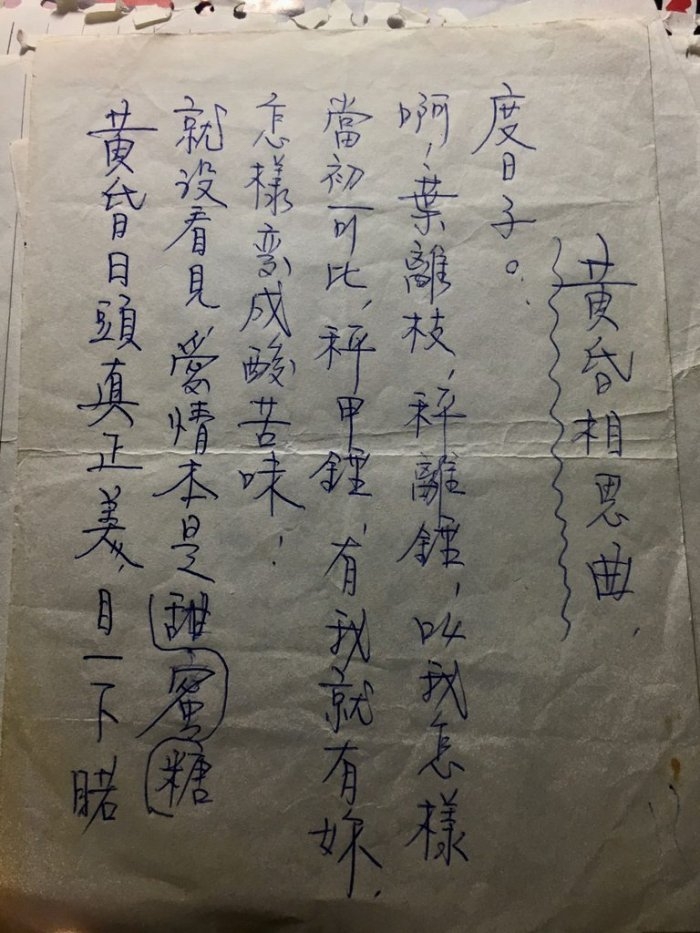 黃昏相思曲,
黃昏日頭真正美,目一下睹
就没看見,愛情本是甜蜜糖
怎樣變成酸苦味;
當初可比,秤甲錘,有我就有妳,
啊,葉離枝,秤離錘,叫我怎樣
度日子。